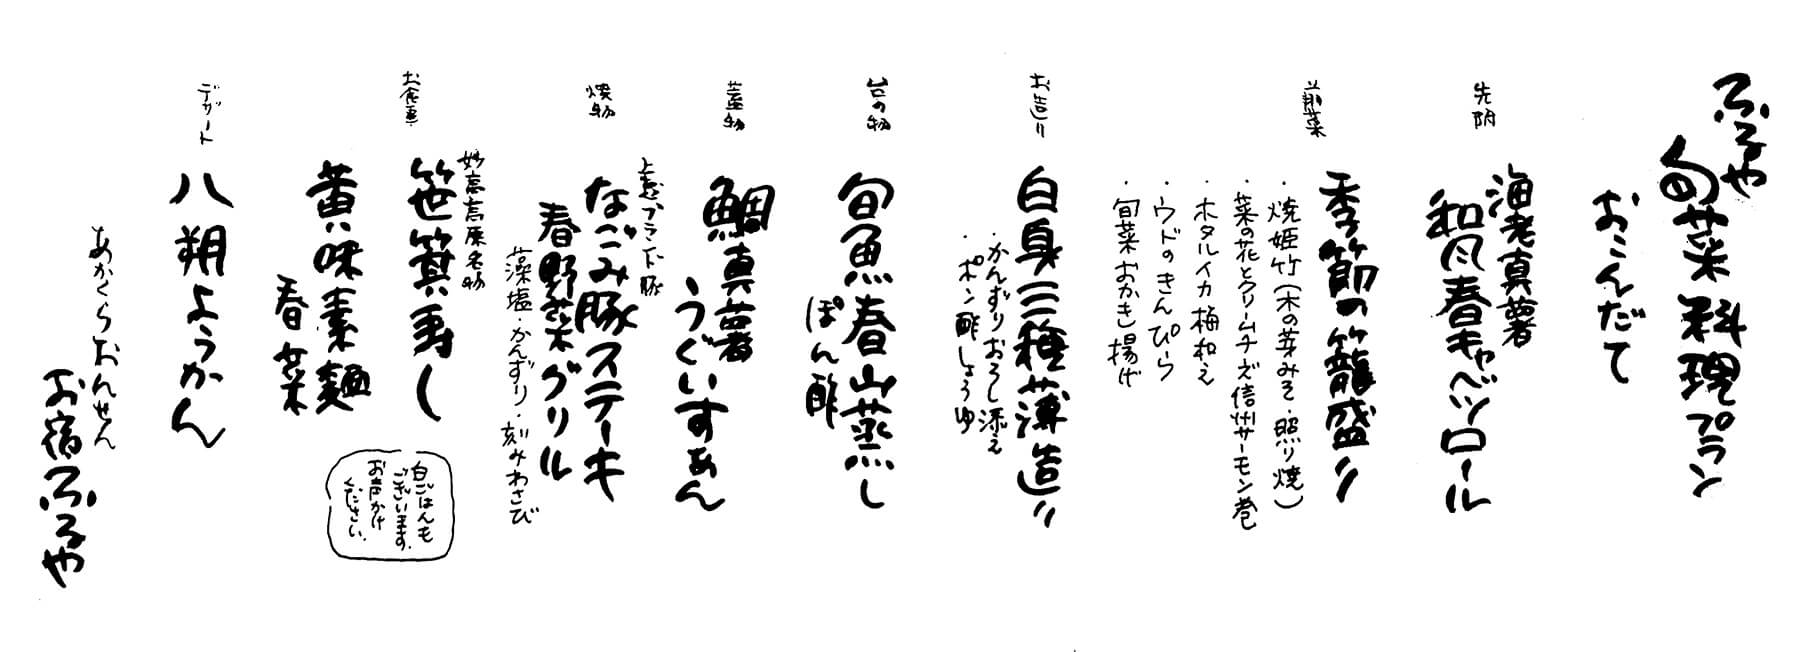 ふるや
旬菜料理プラン
おこんだて
先附
海老真薯
和風春キャベツロール
前菜
季節の籠盛り
・焼姫竹(木の芽みそ・照り焼)
・菜の花とクリームチーズ信州サーモン巻
・ホタルイカ梅和え
・ウドのきんぴら
・旬菜おかき揚げ
お造り
白身三種薄造り
・かんずりおろし添え
・ポン酢しょうゆ
台の物
旬魚春山蒸し
ぽん酢
蒸物
鯛真薯
うぐいすあん
焼物
上越ブランド豚
なごみ豚ステーキ
春野菜グリル
藻塩・かんずり・刻みわさび
お食事
妙高高原名物
笹箕寿し
黄味素麺
春菜
白ごはんも
ございます。
お声かけ
ください。
デザート
八朔ようかん
あかくらおんせん
お宿ふるや